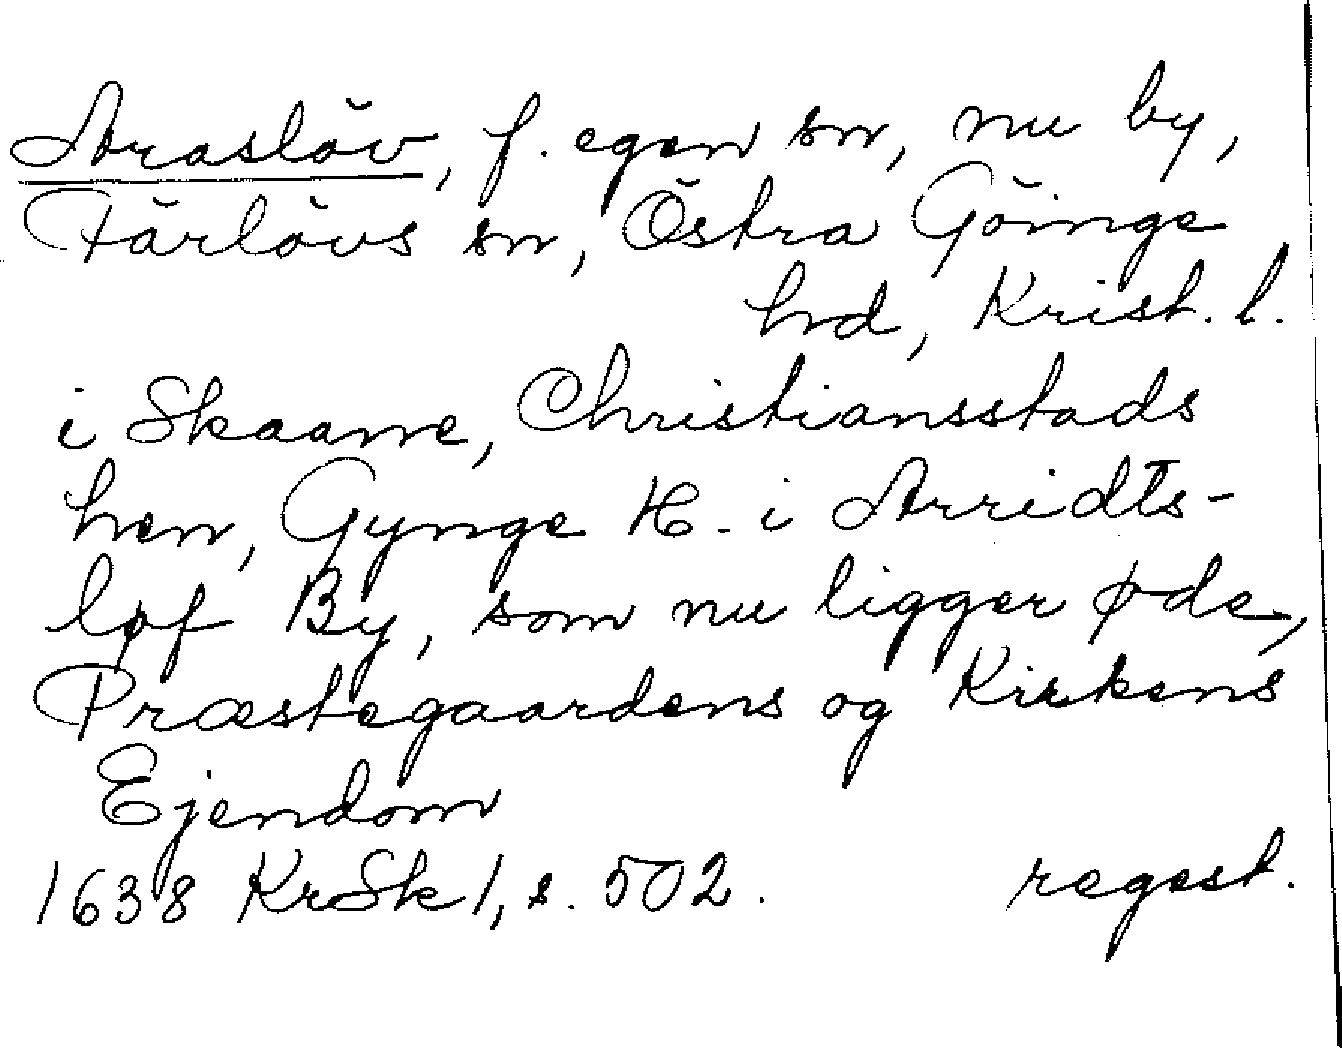 Araslöv, f. egen sn, nu by,
Färlövs sn, Östra Göinge
hrd, Krist. l.
i Skaane, Christiansstads
hen, Gynge H. i Arridts-
løf By, som nu ligger øde,
Præstegaardens og Kirkens
Ejendom
1638 KrSk 1, s. 502. regest.